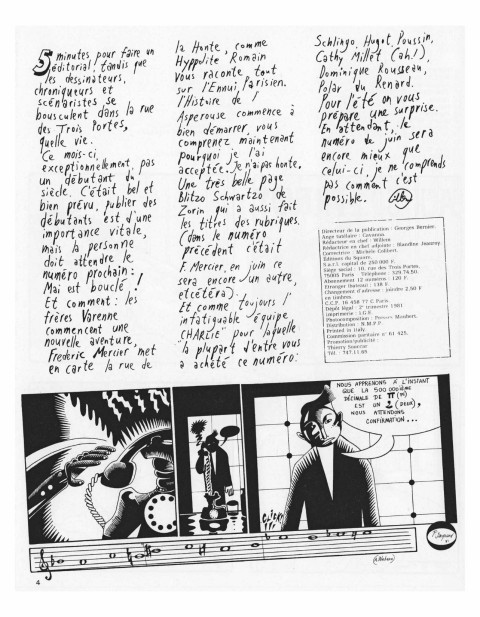 5 minutes pour faire un
éditorial, tandis que
les dessinateurs,
chroniqueurs et
scénaristes se
bousculent dans la rue
des Trois Portes,
quelle vie.
Ce mois-ci,
exceptionnellement, pas
un débutant du
siècle. C'était bel et
bien prévu, publier des
débutants est d'une
importance vitale,
mais la personne
doit attendre le
numéro prochain;
Mai est bouclé!
Et comment: les
frères Varenne
commencent une
nouvelle aventure,
Frederic Mercier met
en carte la rue de
la Honte, comme
Hyppolite Romain
vous raconte tout
sur l'Ennui Parisien.
l'Histoire de l'
Asperouse commence à
bien démarrer, vous
comprenez maintenant
Pourquoi je l'ai
acceptée. Je n'ai pas honte.
Une très belle page
Blitzo Schwartzo de
Zorin qui a aussi fait
les titres des rubriques.
(dans le numéro
précédent c'était
F. Mercier, en juin ce
sera encore un autre,
etcétéra).
Et comme toujours l'
infatiguable équipe
CHARLIE pour laquelle
la plupart d'entre vous
a acheté ce numéro:
Schlingo, Hugot, Poussin,
Cathy Millet (ah!),
Dominique Rousseau,
Polar du Renard.
Pour l'été on vous
prépare une surprise.
En attendant, le
numéro de juin sera
encore mieux que
celui-ci, je ne comprends
pas comment c'est
possible.
Directeur de la publication : Georges Bernier.
Ange tutélaire : Cavanna.
Rédacteur en chef : Willem
Rédactrice en chef adjointe : Blandine Jeanroy.
Correctrice : Michèle Colibert.
Editions du Square.
S.a.r.l. capital de 250 000 F.
Siège social : 10, rue des Trois Portes,
75005 Paris. Téléphone : 329.74.50.
Abonnement 12 numéros : 120 F.
Etranger (bateau) : 138 F.
Changement d'adresse : joindre 2,50 F
en timbres.
C.C.P. 16 458 77 C Paris.
Dépôt légal : 2e trimestre 1981
Imprimerie : I.G.R.
Photocomposition : Presses Monbert.
Distribution : N.M.P.P.
Printed in Italy
Commission paritaire n° 61 425.
Promotion/publicité :
Thierry
Tél. : 747.11.65
NOUS APPRENONS À L'INSTANT
QUE LA 500 000ième
DÉCIMALE DE π (PI)
EST UN 2 (DEUX),
NOUS ATTENDONS
CONFIRMATION...
4